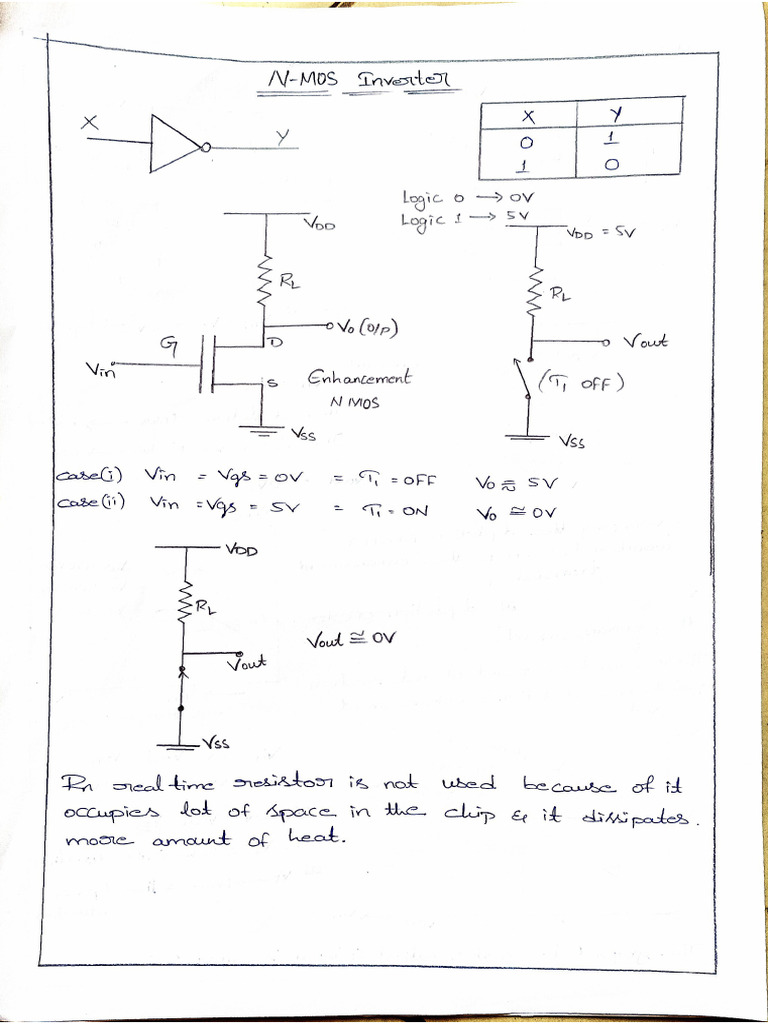 N-MOS Inverter
X
Y
X Y
0 1
1 0
Logic 0 → 0V
Logic 1 → 5V
VDD
RL
Vo (O/P)
G
D
Vin
S
Enhancement
N MOS
VSS
VDD = 5V
RL
Vout
(T1 OFF)
VSS
case(i) Vin = Vgs = 0V = T1 = OFF Vo ≅ 5V
case(ii) Vin = Vgs = 5V = T1 = ON Vo ≅ 0V
VDD
RL
Vout
Vout ≅ 0V
VSS
In real time resistor is not used because of it
occupies lot of space in the chip & it dissipates.
more amount of heat.